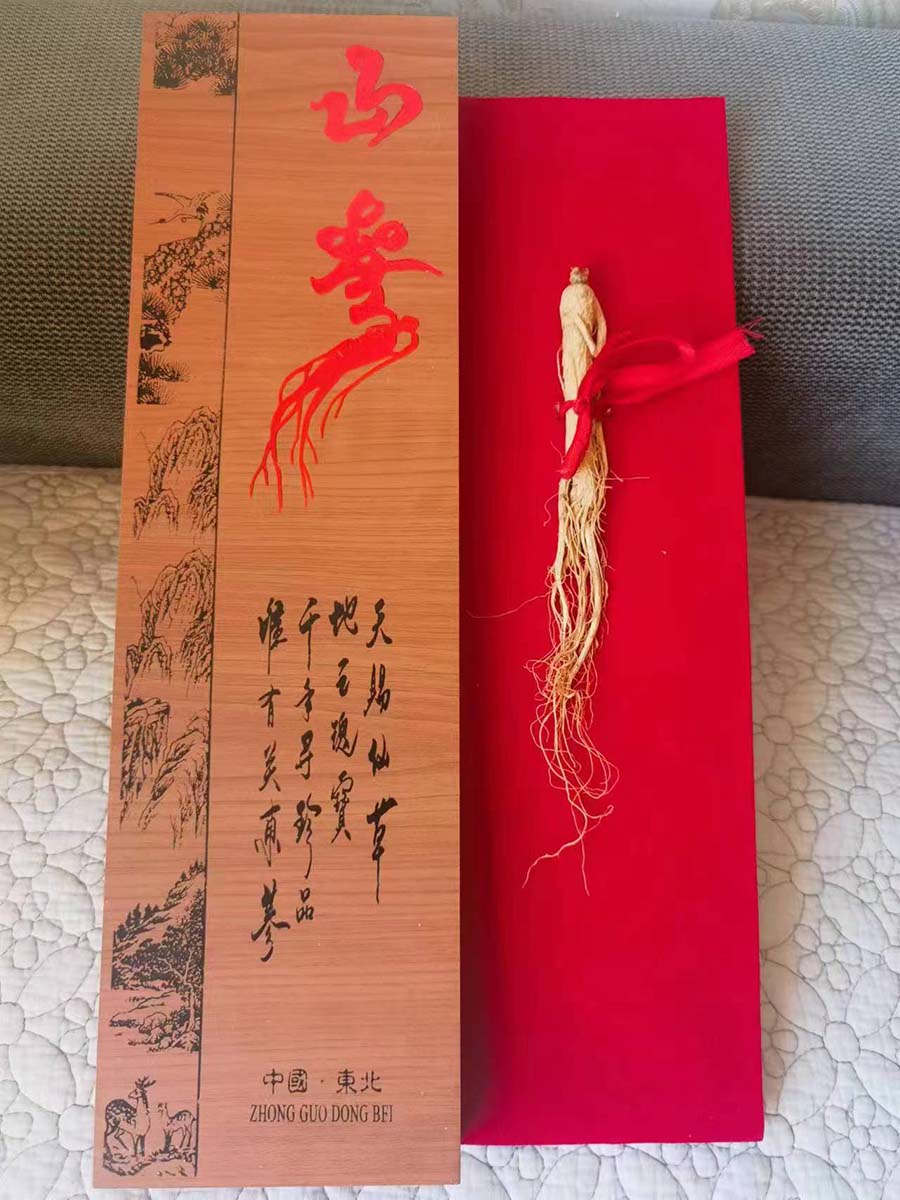 山參
天賜仙草
地之瑰寶
千年寻珍品
唯有关東蔘
中國·東北
ZHONG GUO DONG BEI